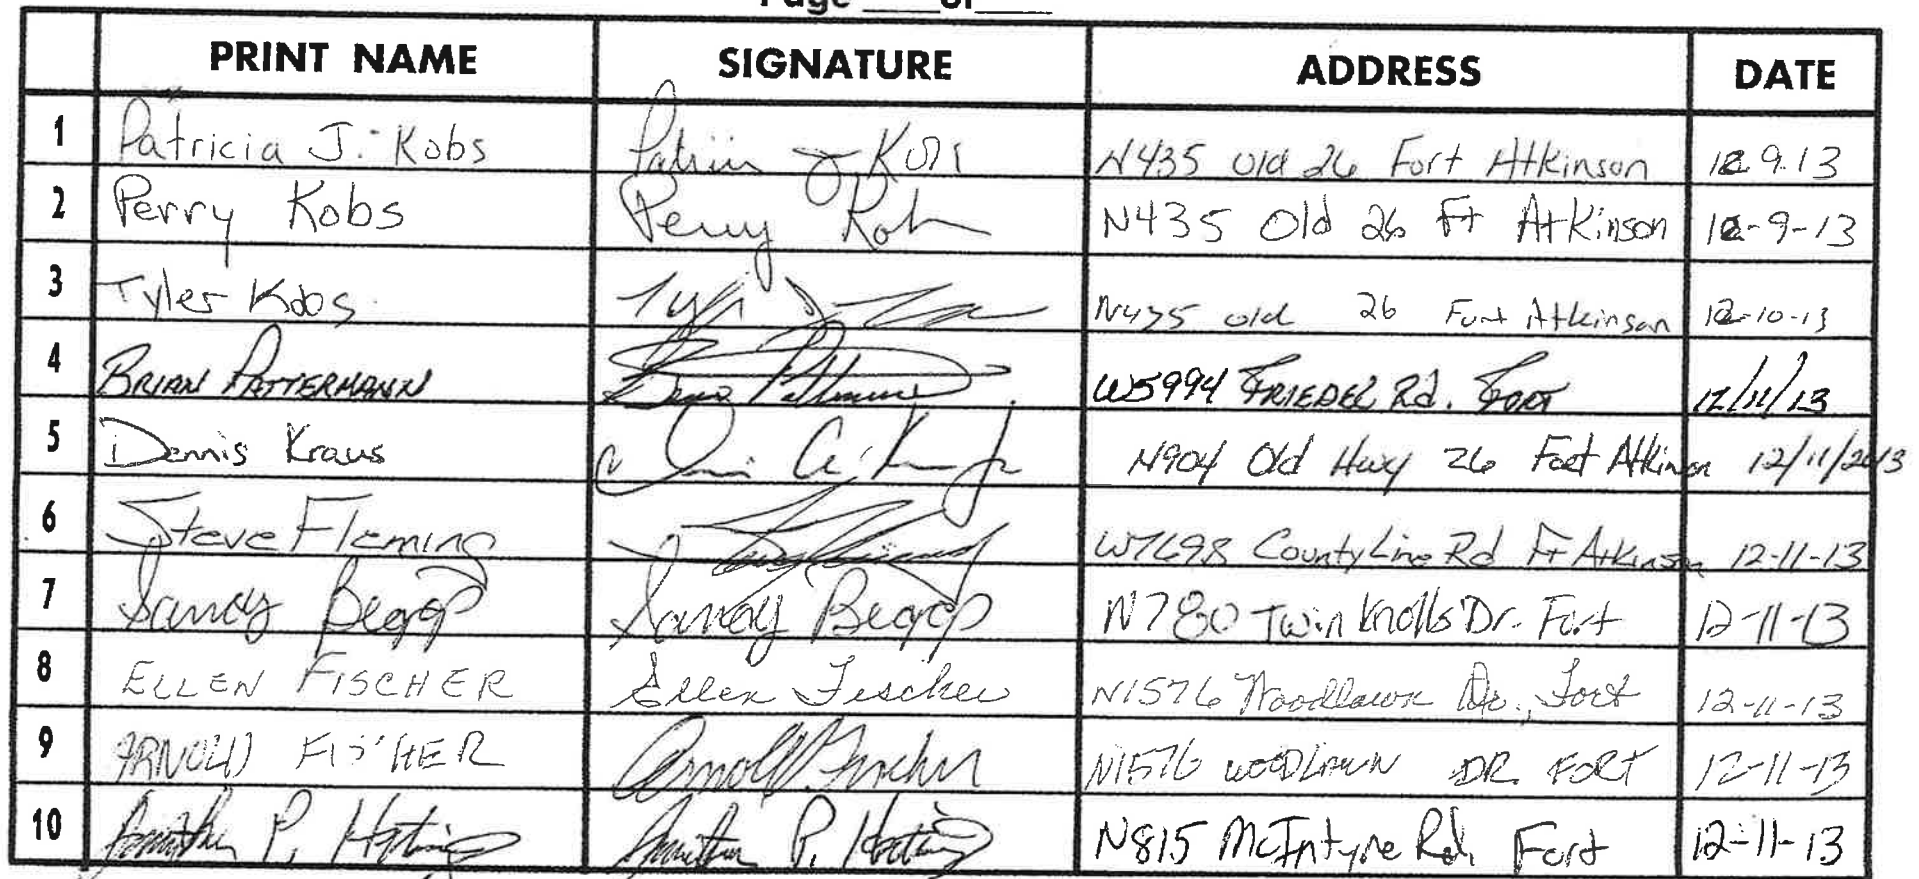 Page ____of____
PRINT NAME SIGNATURE ADDRESS DATE
1 Patricia J. Kobs N435 Old 26 Fort Atkinson 12 9.13
2 Perry Kobs Perry Kobs N435 Old 26 Ft Atkinson 12-9-13
3 Tyler Kobs N435 old 26 Fort Atkinson 12-10-13
4 BRIAN PATTERMANN W5994 FRIEDEL Rd. FORT 12/11/13
5 Dennis Kraus N904 Old Hwy 26 Fort Atkinson 12/11/2013
6 Steve Fleming W7698 County Line Rd Ft Atkinson 12-11-13
7 Sandy Beggs Sandy Beggs N780 Twin Knolls Dr. Fort 12-11-13
8 ELLEN FISCHER Ellen Fischer N1576 Woodlawn Dr., Fort 12-11-13
9 ARNOLD FISCHER Arnold Fischer N1576 WOODLAWN DR. FORT 12-11-13
10 P. P. N815 McIntyre Rd. Fort 12-11-13